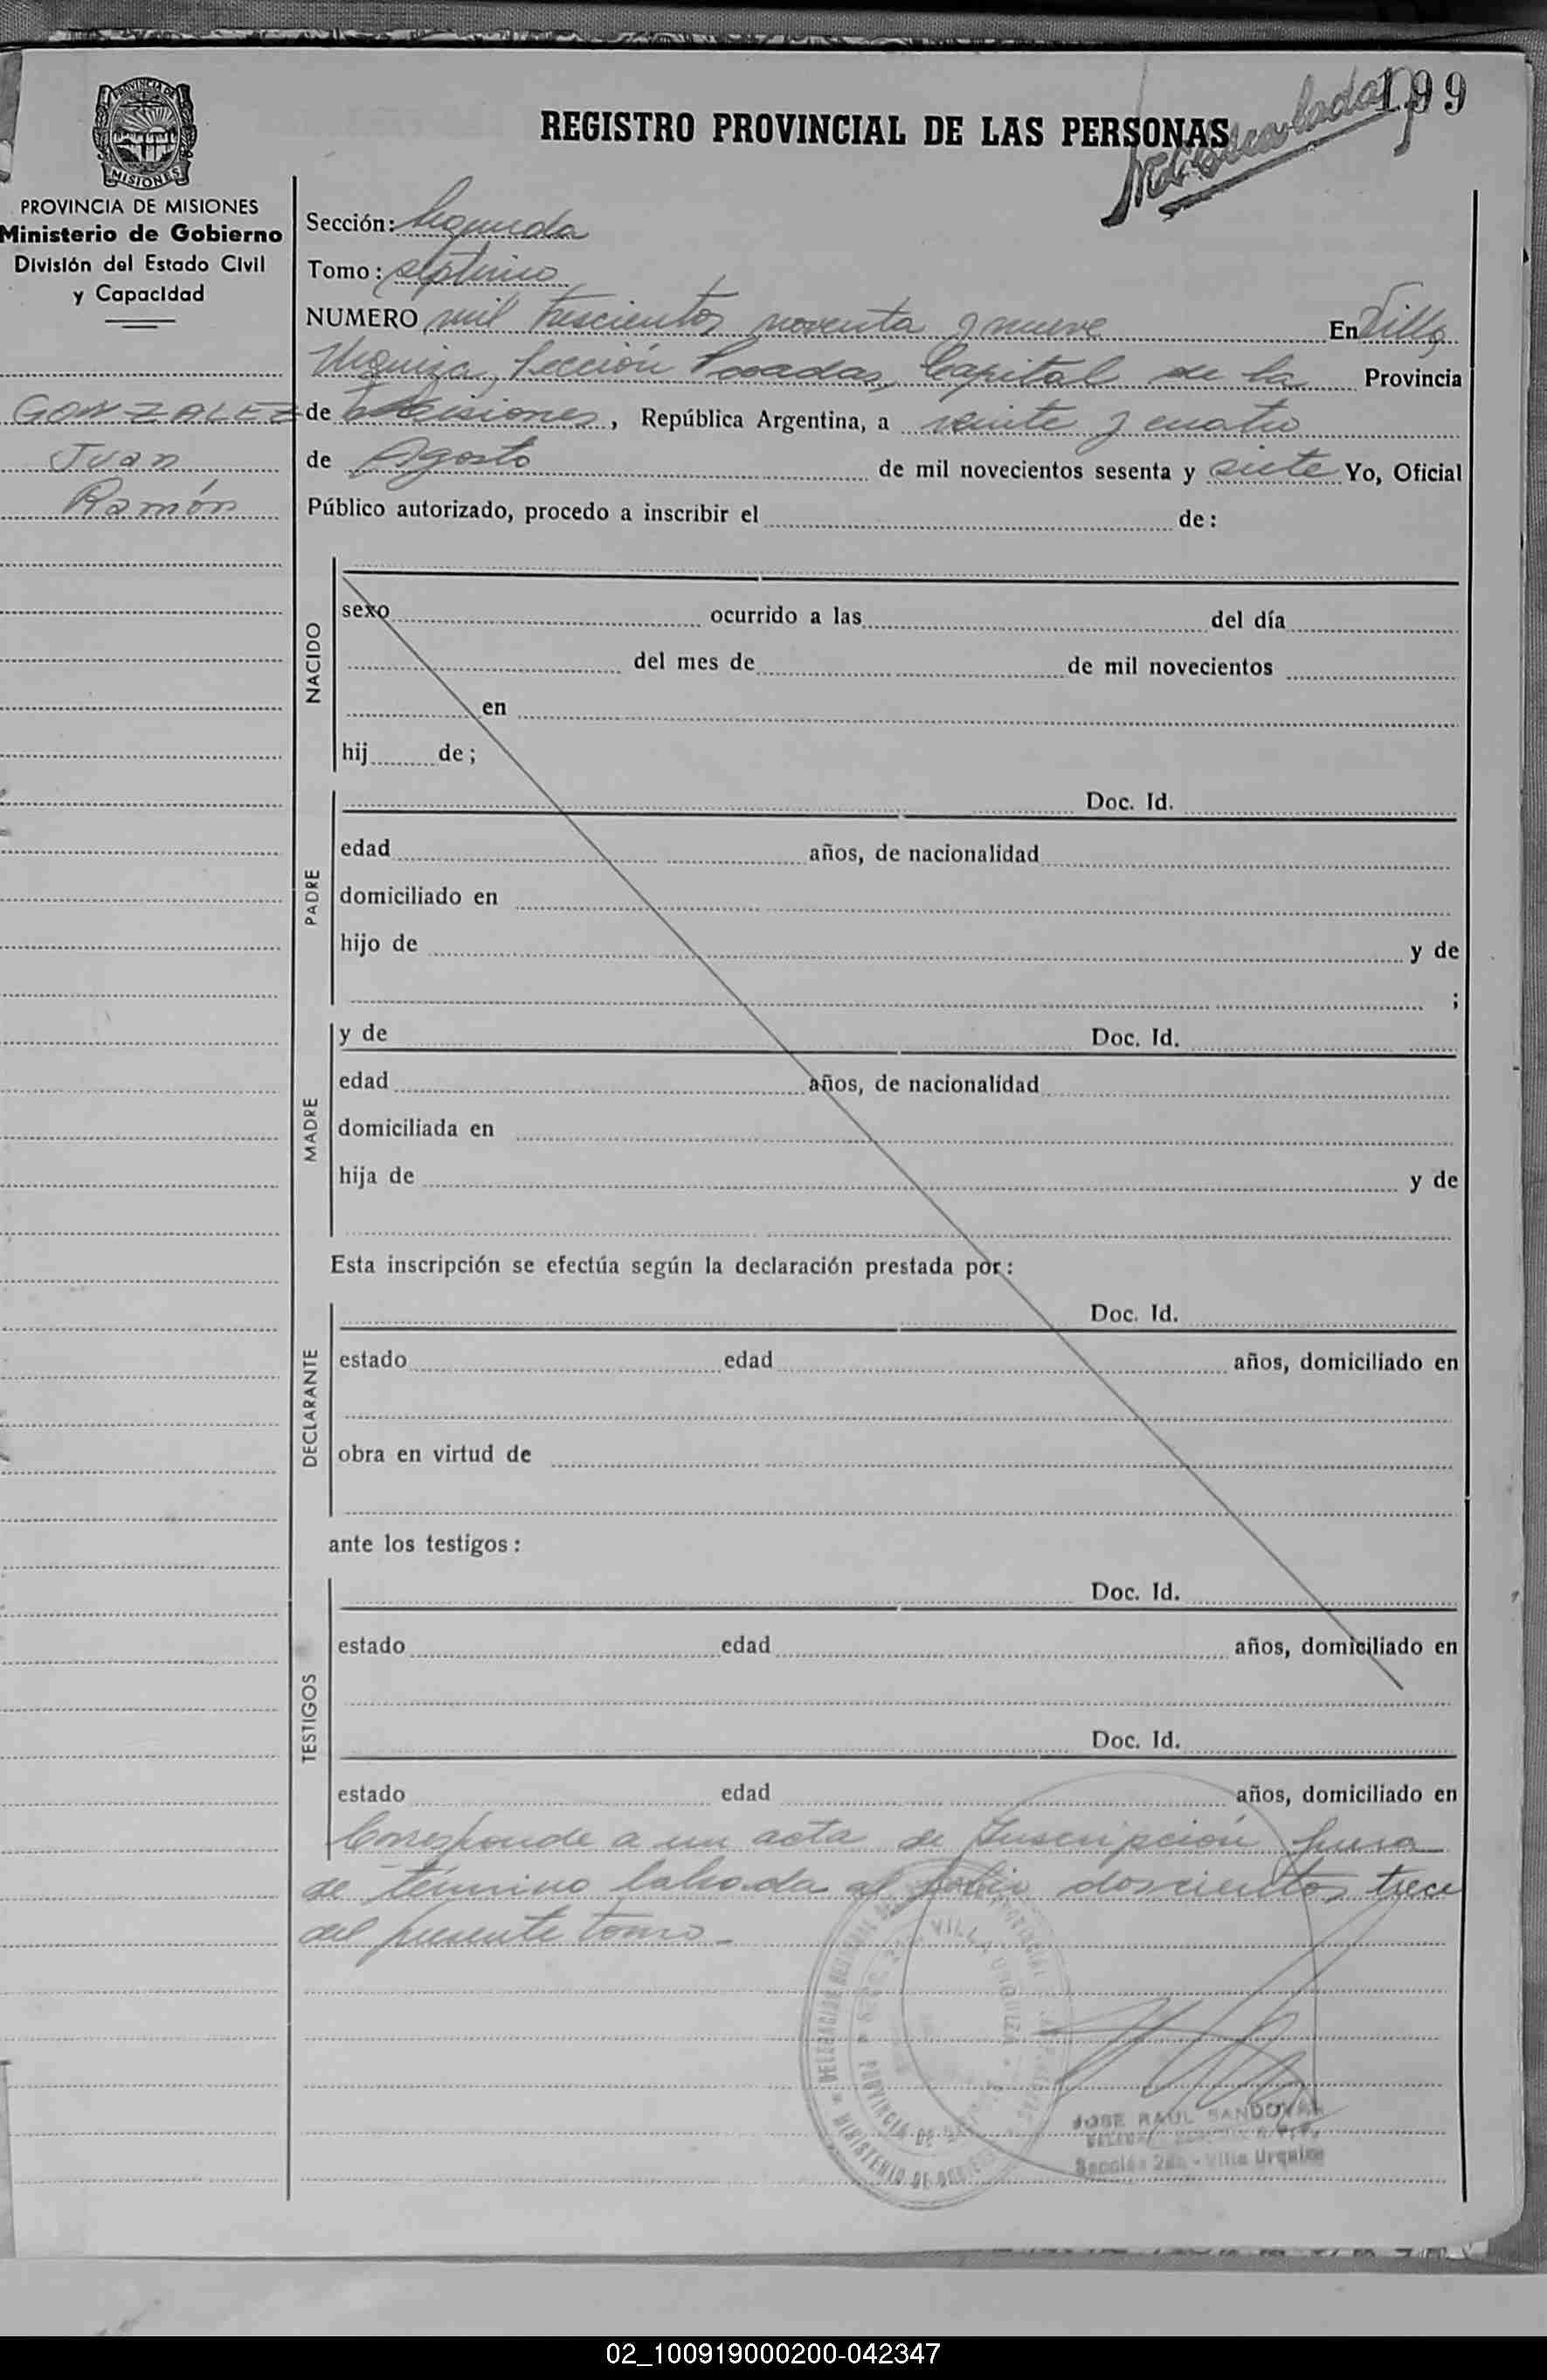 199
REGISTRO PROVINCIAL DE LAS PERSONAS
PROVINCIA DE MISIONES
PROVINCIA DE MISIONES
Ministerio de Gobierno
División del Estado Civil
y Capacidad
GONZALEZ
Juan
Ramón
Sección: Segunda
Tomo: séptimo
NUMERO mil trescientos noventa y nueve En Villa
Urquiza, Sección Posadas, Capital de la Provincia
de Misiones, República Argentina, a veinte y cuatro
de Agosto de mil novecientos sesenta y siete Yo, Oficial
Público autorizado, procedo a inscribir el de:
NACIDO
sexo ocurrido a las del día
del mes de de mil novecientos
en
hij de;
PADRE
Doc. Id.
edad años, de nacionalidad
domiciliado en
hijo de y de
;
MADRE
y de Doc. Id.
edad años, de nacionalidad
domiciliada en
hija de y de
Esta inscripción se efectúa según la declaración prestada por:
DECLARANTE
Doc. Id.
estado edad años, domiciliado en
obra en virtud de
ante los testigos:
TESTIGOS
Doc. Id.
estado edad años, domiciliado en
Doc. Id.
estado edad años, domiciliado en
Corresponde a un acta de Inscripción fuera
de término labrada al folio doscientos trece
del presente tomo.-
VILLA URQUIZA
PROVINCIA DE
MINISTERIO DE
JOSE RAUL SANDOVAL
Sección 2da - Villa Urquiza
02_100919000200-042347